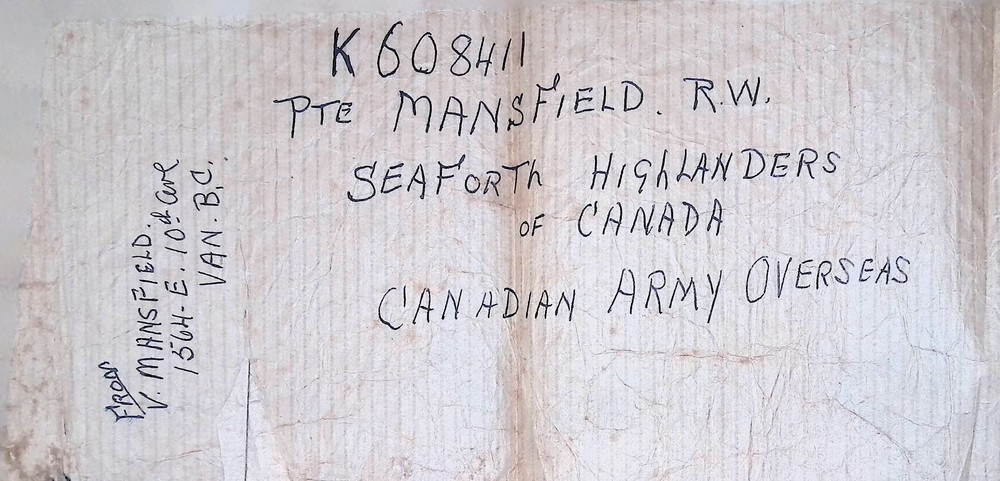 K 608411
PTE MANSFIELD. R.W.
SEAFORTh HIGhLANDERS
OF CANADA
CANADIAN ARMY OVERSEAS
FROM
V. MANSFIELD.
1564-E. 10th ave
VAN. B.C.